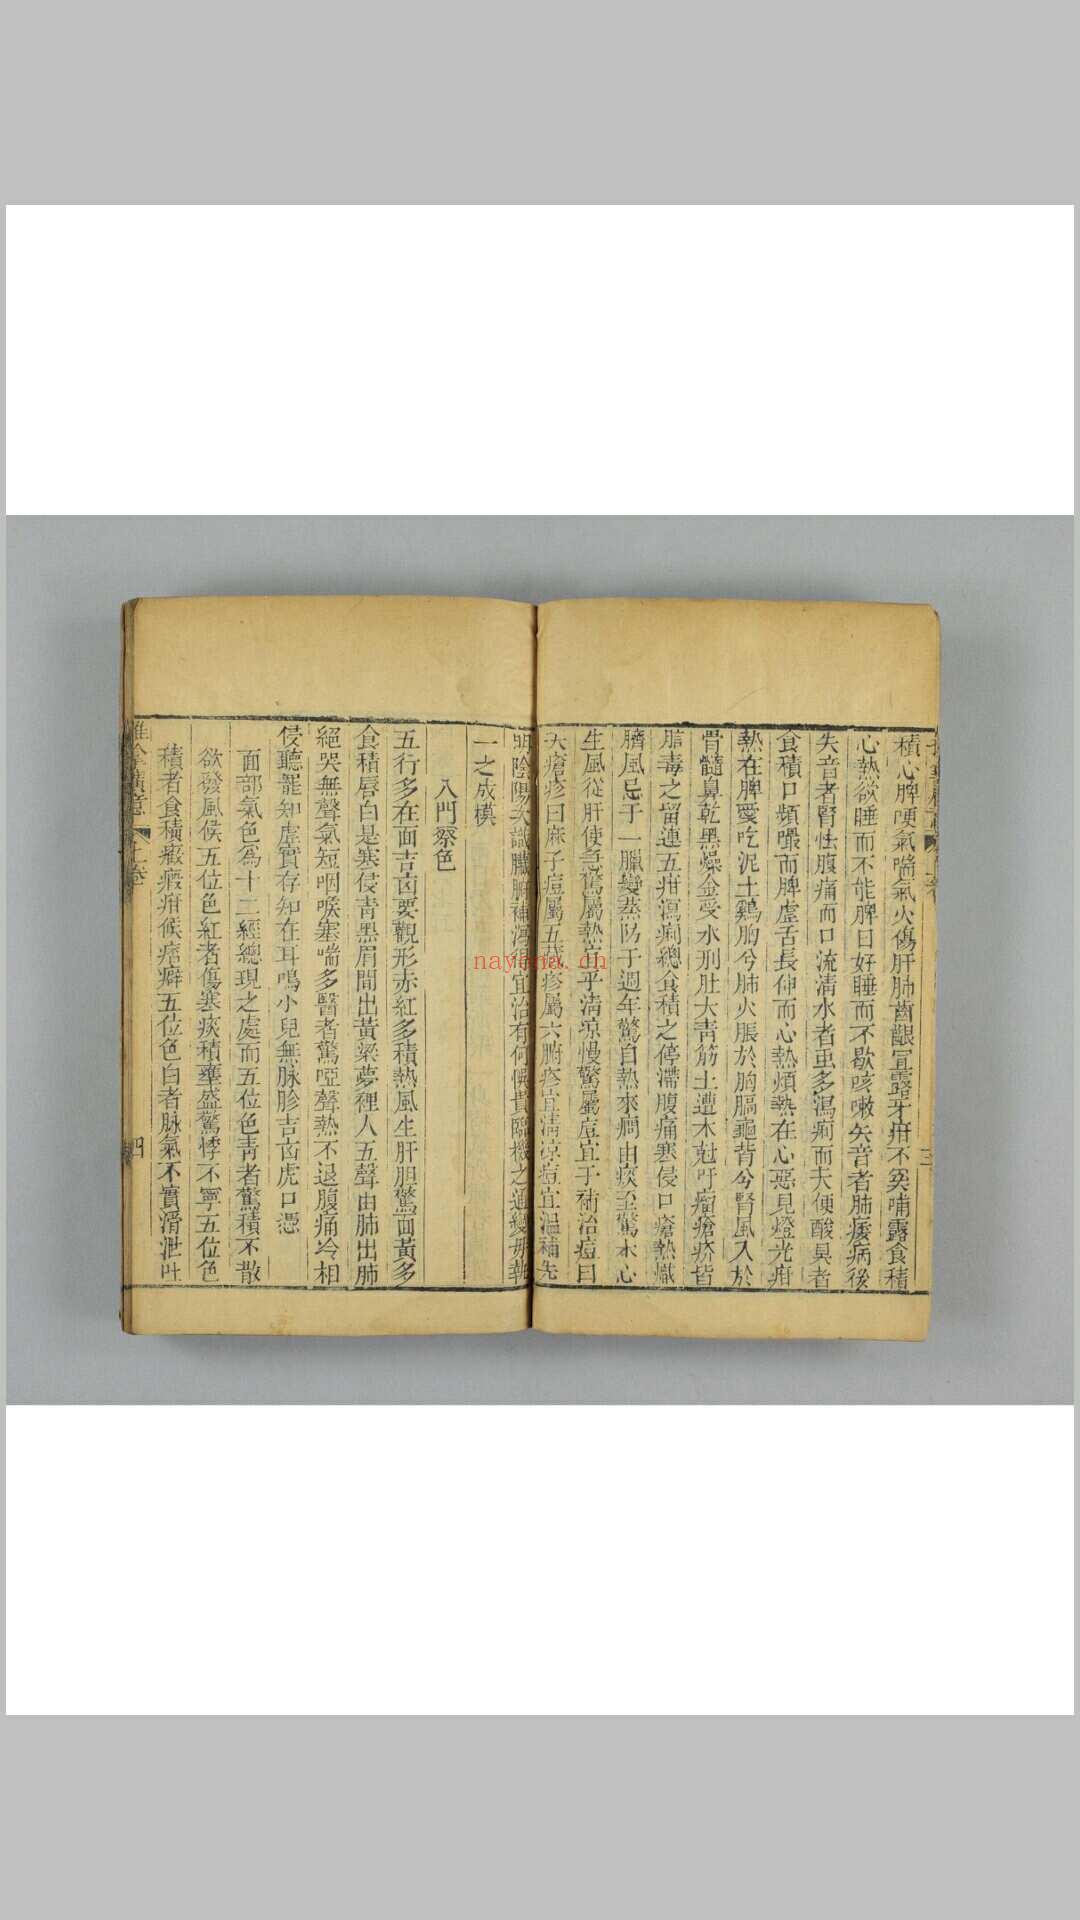 積心脾哽氣喘氣火傷肝肺齒齦宣露牙疳不奚哺露食積
心熱欲睡而不能脾日好睡而不歇咳嗽失音者肺痿病後
失音者腎怯腹痛而口流清水者虫多瀉痢而大便酸臭者
食積口頻嘬而脾虛舌長伸而心熱煩熱在心惡見燈光疳
熱在脾愛吃泥土鷄胸兮肺火脹於胸膈龜背兮腎風入於
骨髓鼻乾黑燥金受水刑肚大青筋土遭木尅吁瘤瘡疥皆
胎毒之留連五疳瀉痢總食積之停滯腹痛寒侵口瘡熱熾
臍風忌于一臘變蒸防于週年驚自熱來癇由痰至驚木心
生風從肝使急驚屬熱宜乎清凉慢驚屬虛宜于補治痘曰
天瘡疹曰麻子痘屬五臟疹屬六腑疹宜清凉痘宜溫補先
明陰陽次識臟腑補瀉得宜治有何悞貴臨機之通變毋執
一之成模
入門察色
五行多在面吉凶要觀形赤紅多積熱風生肝胆驚面黃多
食積唇白是寒侵青黑眉間出黃粱夢裡人五聲由肺出肺
絕哭無聲氣短咽喉塞喘多醫者驚啞聲熱不退腹痛冷相
侵聽罷知虛實存知在耳鳴小兒無脉胗吉凶虎口憑
面部氣色爲十二經總現之處而五位色靑者驚積不散
欲發風候五位色紅者傷寒痰積壅盛驚悸不寧五位色
積者食積癥瘕疳候痞癖五位色白者脉氣不實滑泄吐
推拿廣意
上卷
四
三
nayona.ch